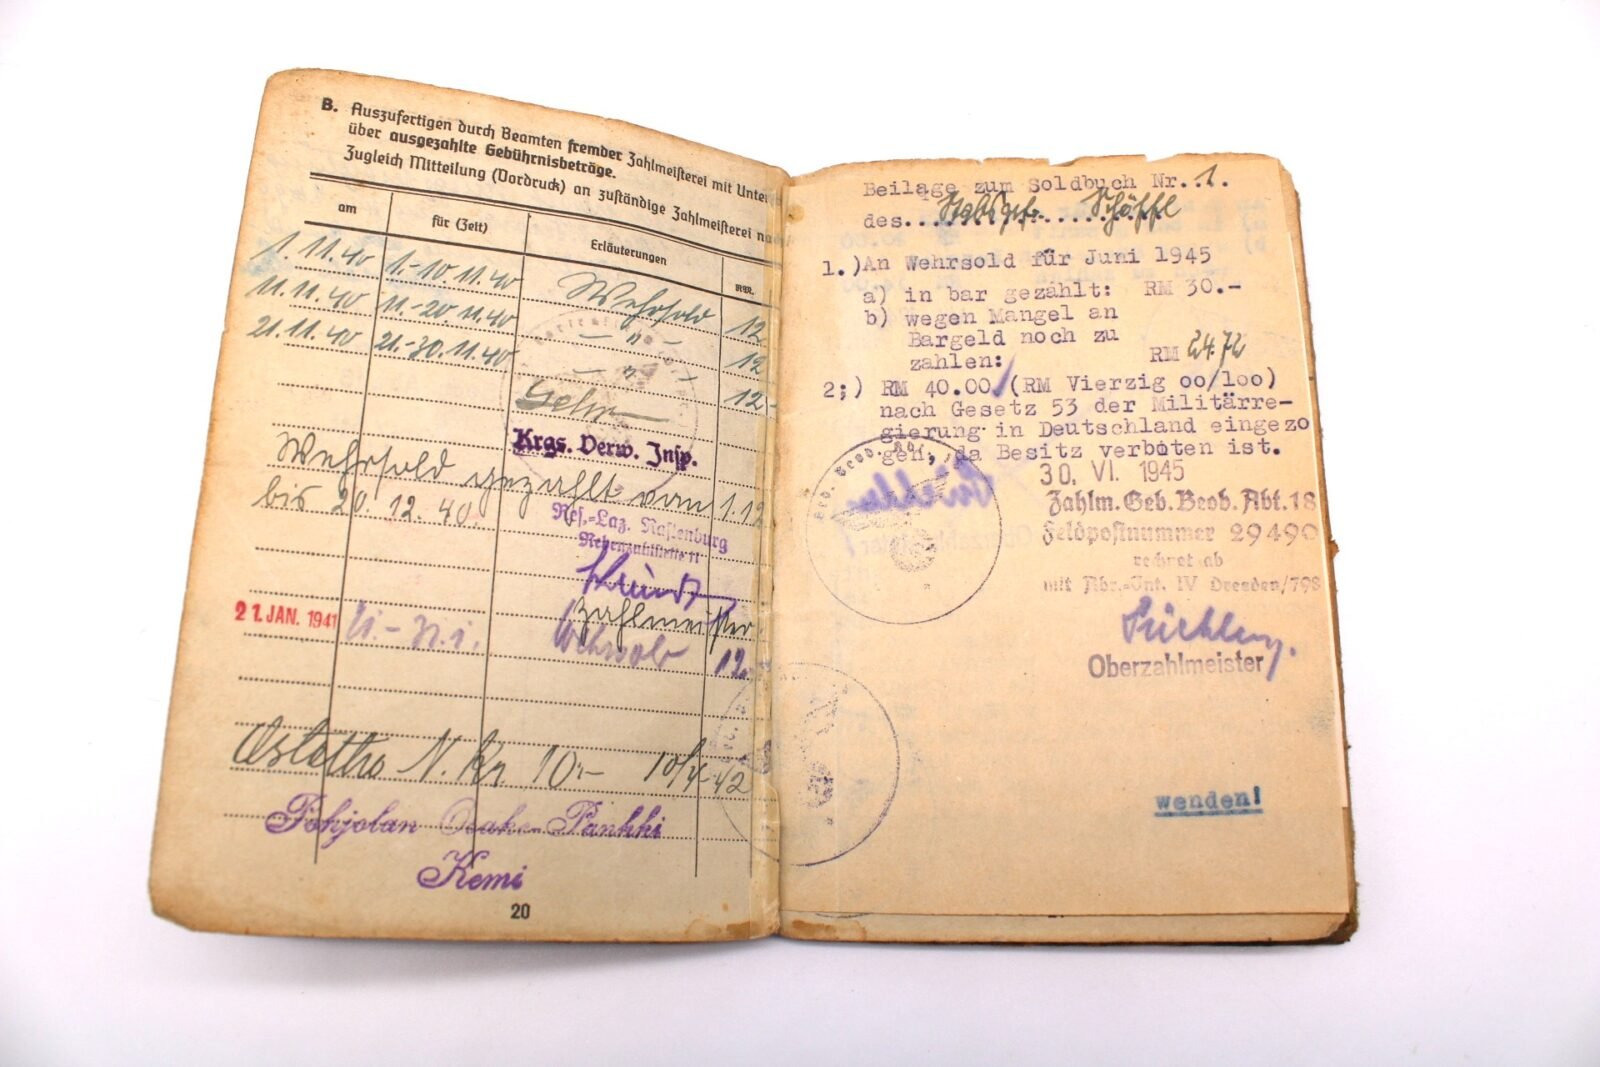 B. Auszufertigen durch Beamten fremder Zahlmeisterei mit Unter
über ausgezahlte Gebührnisbeträge.
Zugleich Mitteilung (Vordruck) an zuständige Zahlmeisterei na
am für (Zeit) Erläuterungen RM.
1.11.40 1.-10.11.40 Wehrsold 12
11.11.40 11.-20.11.40 — " — 12
21.11.40 21.-30.11.40 — " — 12.-
Krgs. Verw. Insp.
Wehrsold gezahlt vom 1.12
bis 20.12.40.
Res.-Laz. Rastenburg
Nebenzahlstelle II
Zahlmeister.
21. JAN. 1941 Wehrsold 12.
N. Kr. 10.- 10/4 42
Pohjolan Osake-Pankki
Kemi
20
Beilage zum Soldbuch Nr..1.
des...Stabsgefr.....Schöffl
1.)An Wehrsold für Juni 1945
a) in bar gezahlt: RM 30.-
b) wegen Mangel an
Bargeld noch zu
zahlen: RM 24.72
2;) RM 40.00 (RM Vierzig oo/1oo)
nach Gesetz 53 der Militärre-
gierung in Deutschland eingezo
gen, da Besitz verboten ist.
30. VI. 1945
Zahlm. Geb. Beob. Abt. 18
Feldpostnummer 29490
rechnet ab
mit Abr.-Int. IV Dresden/798
Oberzahlmeister
wenden!